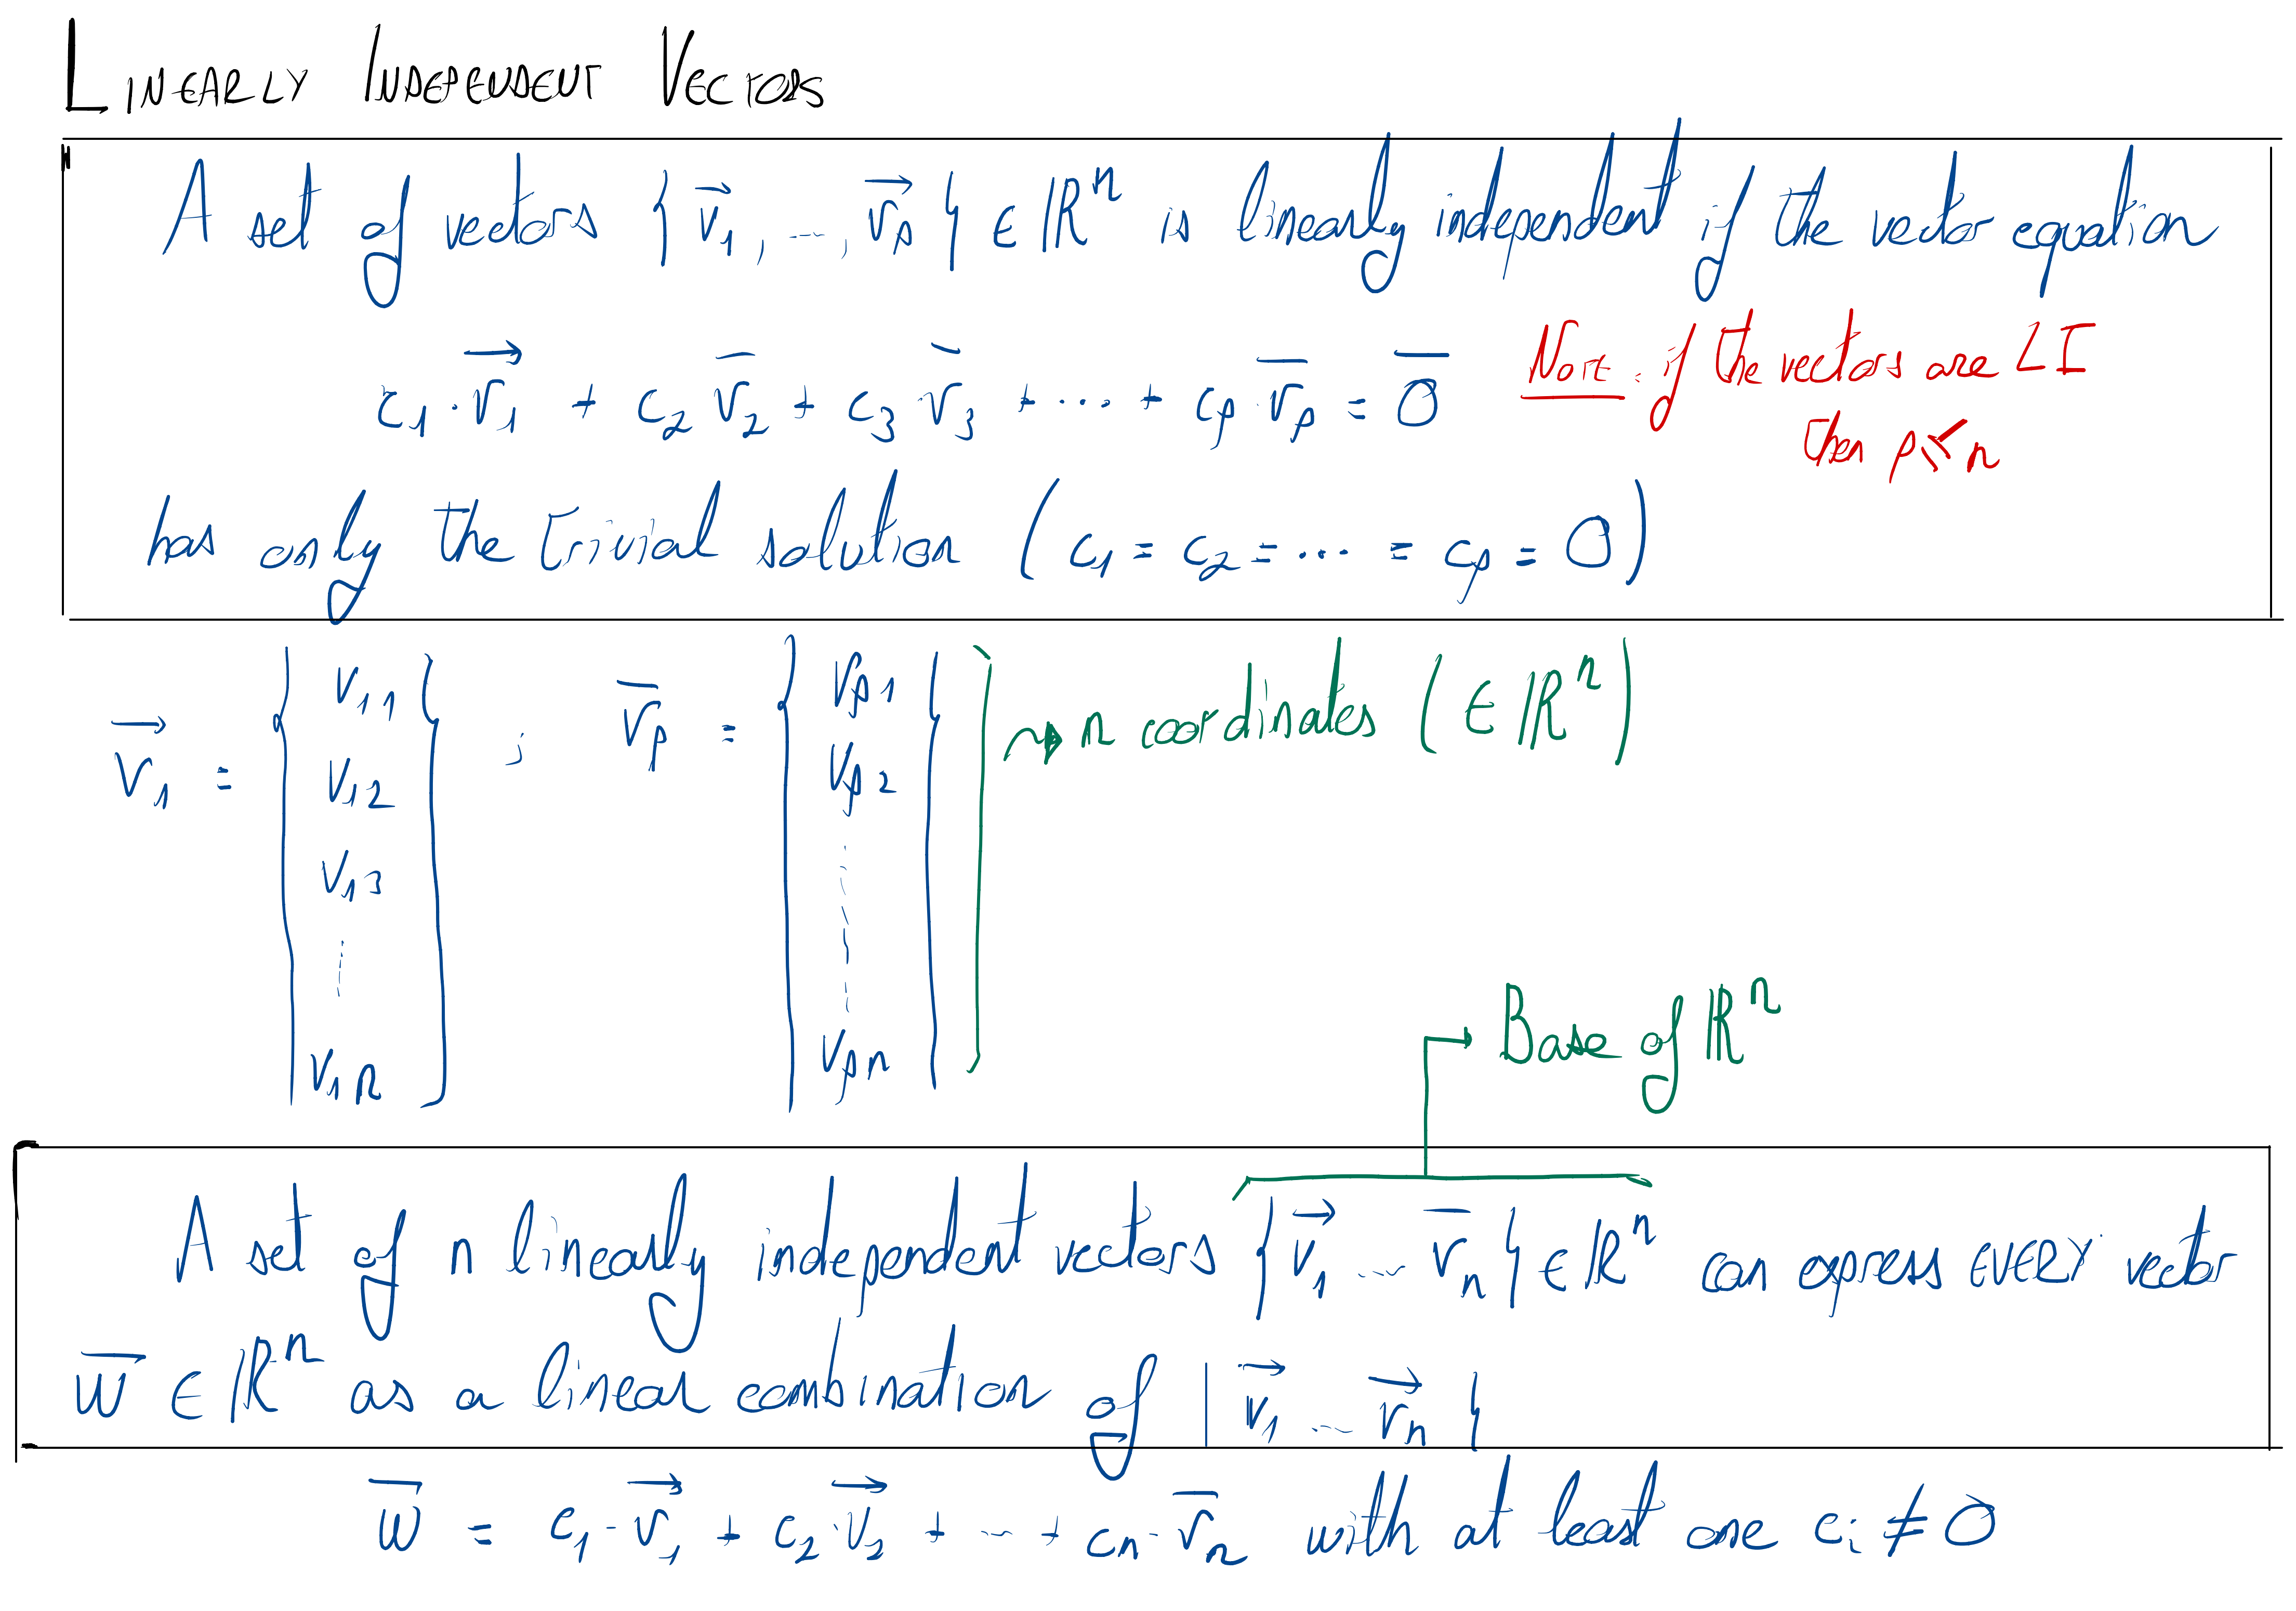 LINEARLY INDEPENDENT VECTORS
A set of vectors {v⃗₁, ..., v⃗ₚ} ∈ ℝⁿ is linearly independent if the vector equation
c₁·v⃗₁ + c₂ v̅₂ + c₃ v̅₃ + ... + cₚ·v̅ₚ = 0̅
NOTE: if the vectors are LI
then p ≤ n
has only the trivial solution (c₁ = c₂ = ... = cₚ = 0)
v⃗₁ = { v₁₁ v₁₂ v₁₃ ⋮ v₁ₙ } ; v̅ₚ = { vₚ₁ vₚ₂ ⋮ vₚₙ } → n coordinates (∈ ℝⁿ)
→ Base of ℝⁿ
A set of n linearly independent vectors {v⃗₁ ... v̅ₙ} ∈ ℝⁿ can express EVERY vector
w̅ ∈ ℝⁿ as a linear combination of {v⃗₁ ... v⃗ₙ}
w̅ = c₁·v⃗₁ + c₂·v⃗₂ + ... + cₙ·v̅ₙ with at least one cᵢ ≠ 0